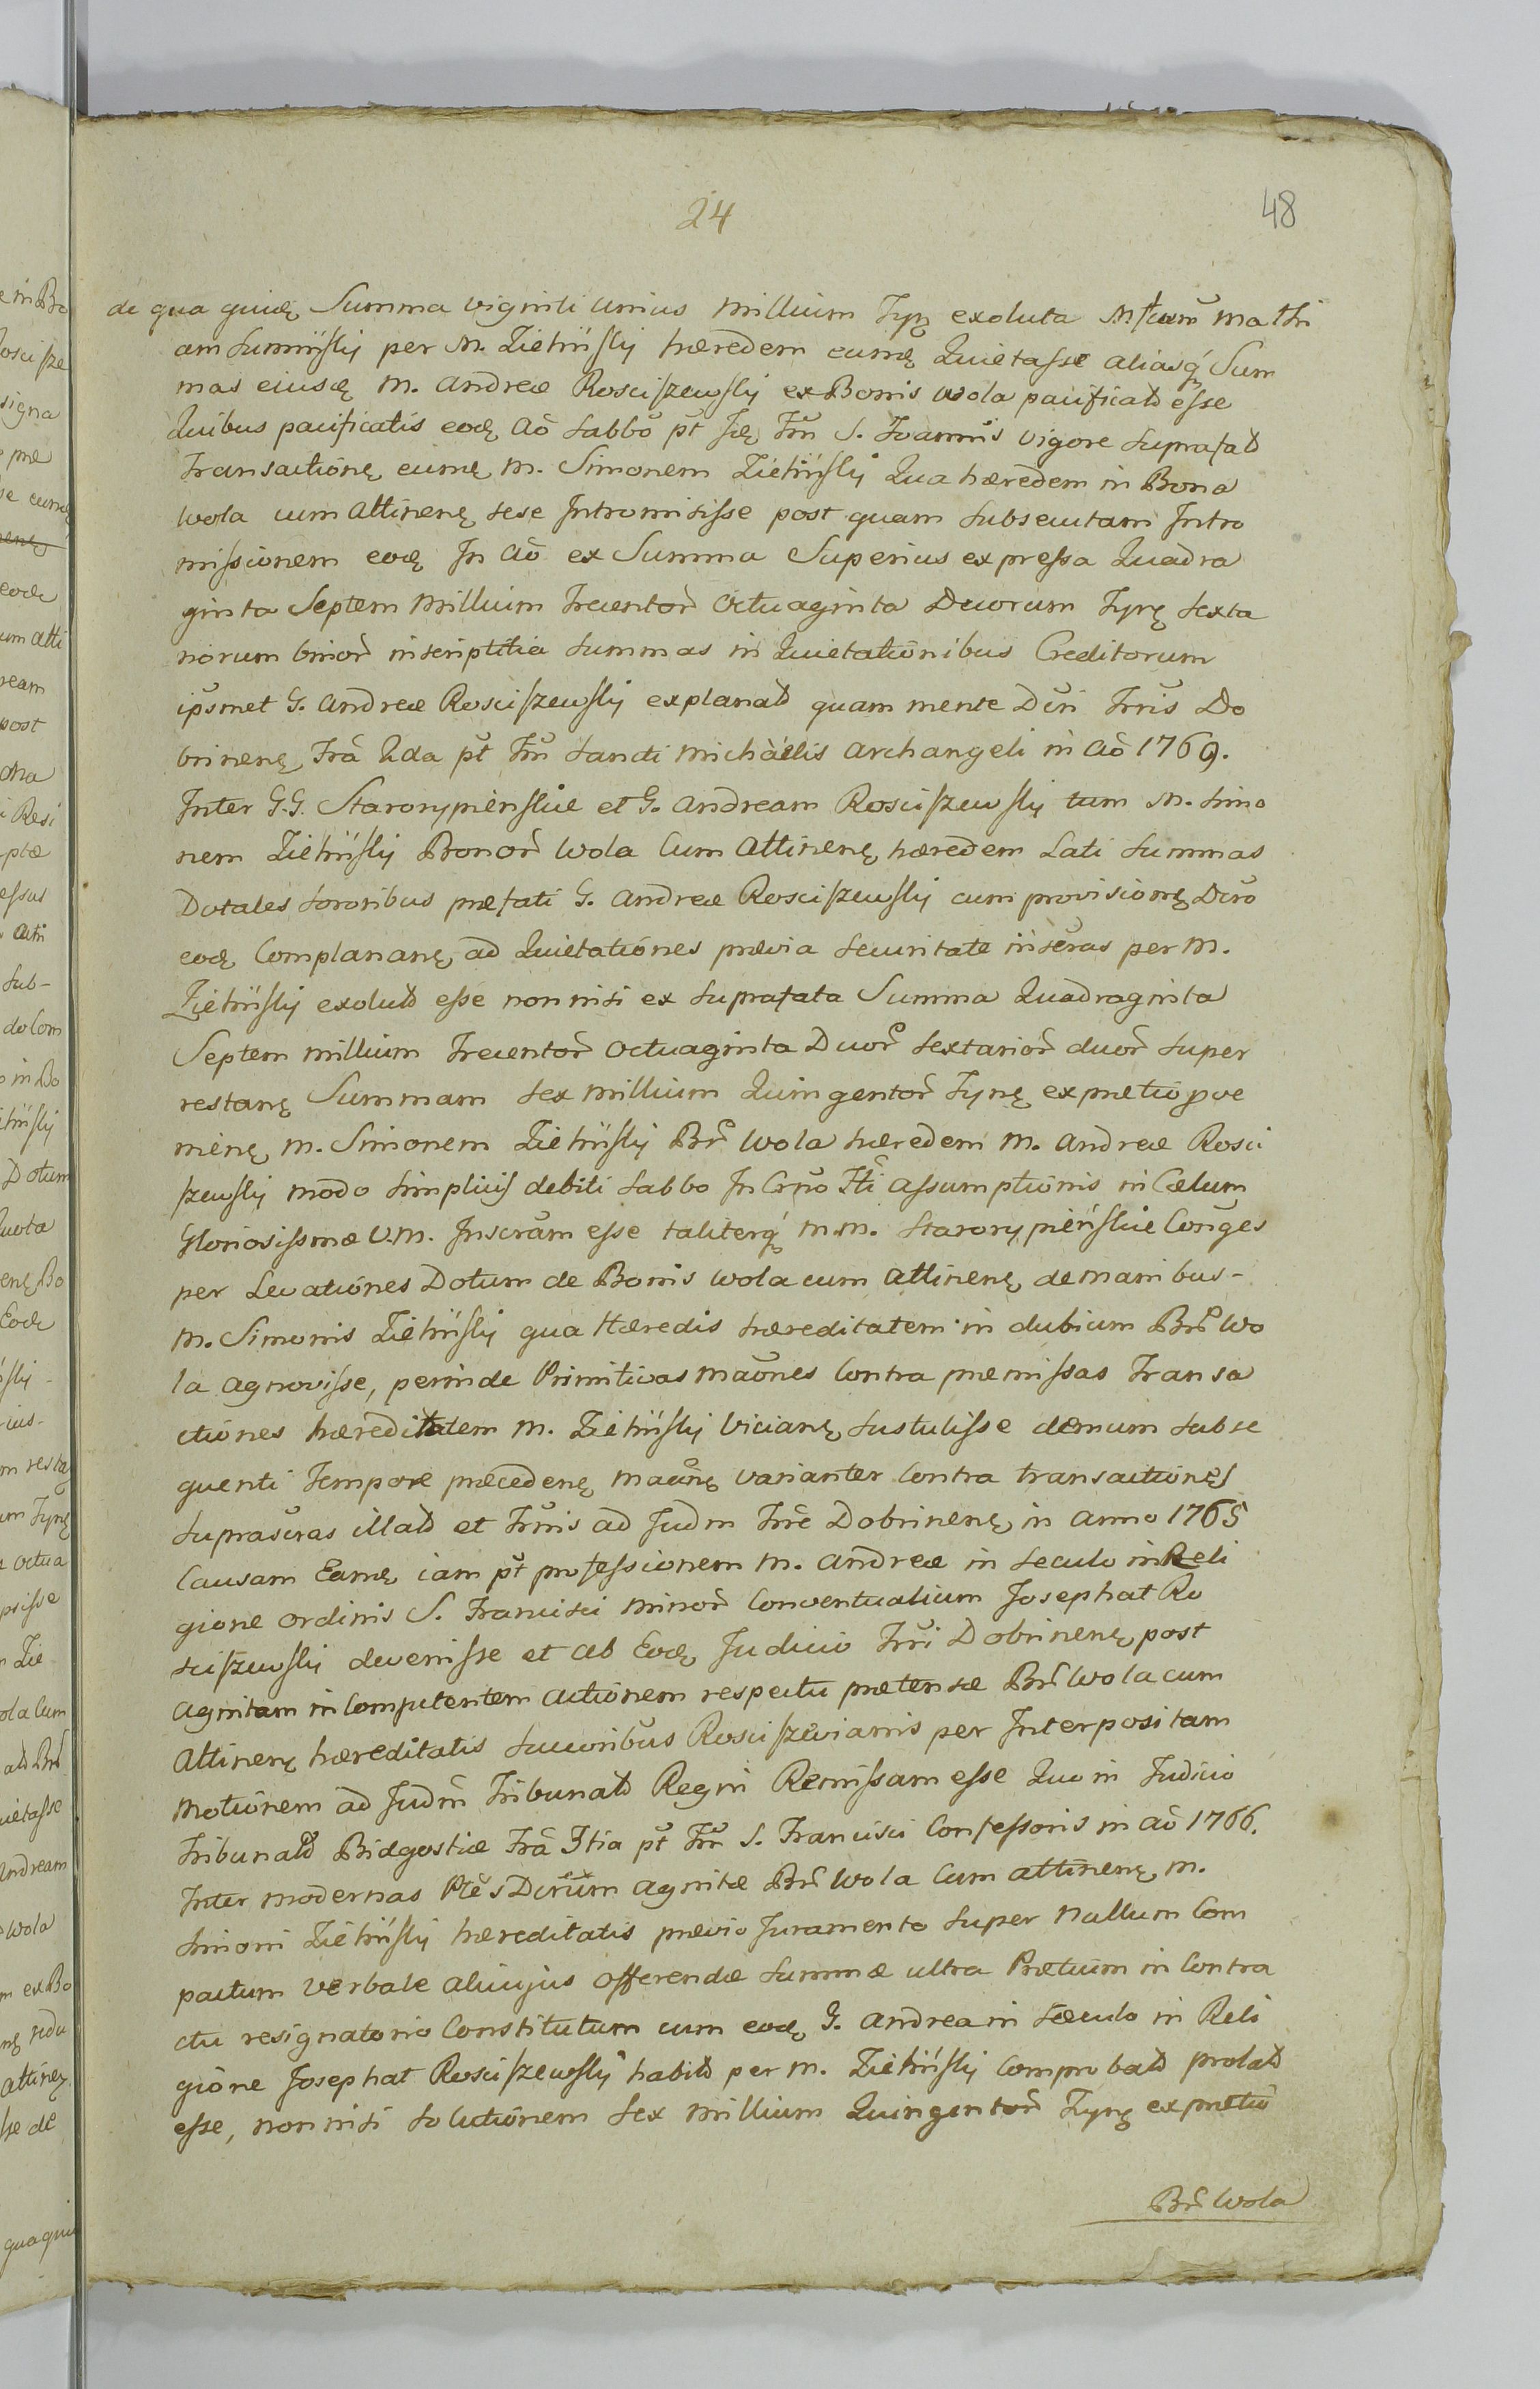 24
48
de qua quidę Summa viginti unius Millium Tyn̨ exoluta M. Mathi
am Sumiń̃skij per M. Zieliń̃skij hæredem eumę Quietasse aliasq́ Sum
mas eiusę M. Andreæ Rosciszewskij ex Bonis Wola pacificatӑ esse
Quibus pacificatis eodę Aõ Sabbõ pt̃ Fę Ftũ S. Joannis vigore supra fatӑ
Transactionę eumę M. Simonem Zieliń̃skij Qua hæredem in Bona
Wola cum attinenę sese Intromisisse post quam subsecutam Intro
missionem eodę In Aõ ex Summa Superius expressa Quadra
ginta Septem Millium Trecentor̃ Octuaginta Duorum Tynę sexta
norum binor̃ inscriptitia summas in Quietationibus Creditorum
ipsmet G. Andreæ Rosciszewskij explanatӑ quam mente Dc̃ri Trr̃is Do
brinenę Frã 2da pt̃ Ftũ Sancti Michäelis Archangeli in Aõ 1769.
Inter G.G. Starorypiensk̃ie et G. Andream Rosciszewskij tum M. Simo
nem Zieliń̃skij Bonor̃ Wola Cum Attinenę hæredem Lati Summas
Dotales sororibus præfati G. Andreæ Rosciszewskij cum provisionę Dc̃ro
eodę Complananę ad Quietationes prævia securitate inseras per M.
Zieliń̃skij exolutӑ esse non nisi ex suprafata Summa Quadraginta
Septem Millium Trecentor̃ Octuaginta Duor̃ sextarior̃ duor̃ super
restanę Summam sex Millium Quingentor̃ Tynę ex prætio prove
nienę M. Simonem Zieliń̃skij Br̃ Wola hæredem M. Andreæ Rosci
szewskij modo simplicis debiti Sabbo In Crs̃no Fti Assumptionis in Cælum
Gloriosissmæ V.M. Inscr̃am esse taliterq́ M.M. Starorypień̃skie Conges
per Levationes Dotum de Bonis Wola cum Attinenę de manibus -
M. Simonis Zieliń̃skij qua Hæredis hæreditatem in dubium Br̃ Wo
la agnovisse, perinde Primitivas Maões Contra præmissas Transa
ctiones hæreditatem M. Zieliń̃skij Vicianę sustulisse demum subse
quenti Tempore præcedenę Maõnę varianter Contra transactionęs
suprascras illatӑ et Trr̃is ad Judm̃ Trr̃e Dobrinenę in anno 1765
Causam Eamę iam pt̃ professionem M. Andreæ in seculo in Reli
gione Ordinis S. Francisci Minor̃ Conventualium Josephat Ro
sciszewskij devenisse et ab Eodę Judicio Trr̃i Dobrinenę post
agnitam in Competentem actionem respectu prætensæ Br̃ Wola cum
Attinenę hæreditatis successoribus Rosciszewianis per Interpositam
Motionem ad Judm̃ Tribunatӑ Regni Remissam esse Quo in Judicio
Tribunatӑ Bidgostiæ Frã 3tia pt̃ Ftũ S. Francisci Confessoris in Aõ 1766.
Inter modernas Ptẽs Dc̃rum agnitæ Br̃ Wola Cum attinenę M.
Simoni Zieliń̃skij hæreditatis prævio Juramento super Nullum Com
pactum verbale alicujus Offerendæ summæ ultra Prætium in Contra
ctu resignatorio Constitutum cum eodę G. Andrea in sæculo in Reli
gione Josephat Rosciszewskij habitӑ per M. Zieliń̃skij Comprobatӑ prolatӑ
esse, non nisi solutionem sex Millium Quingentor̃ Tynę ex prætio
Br̃ Wola